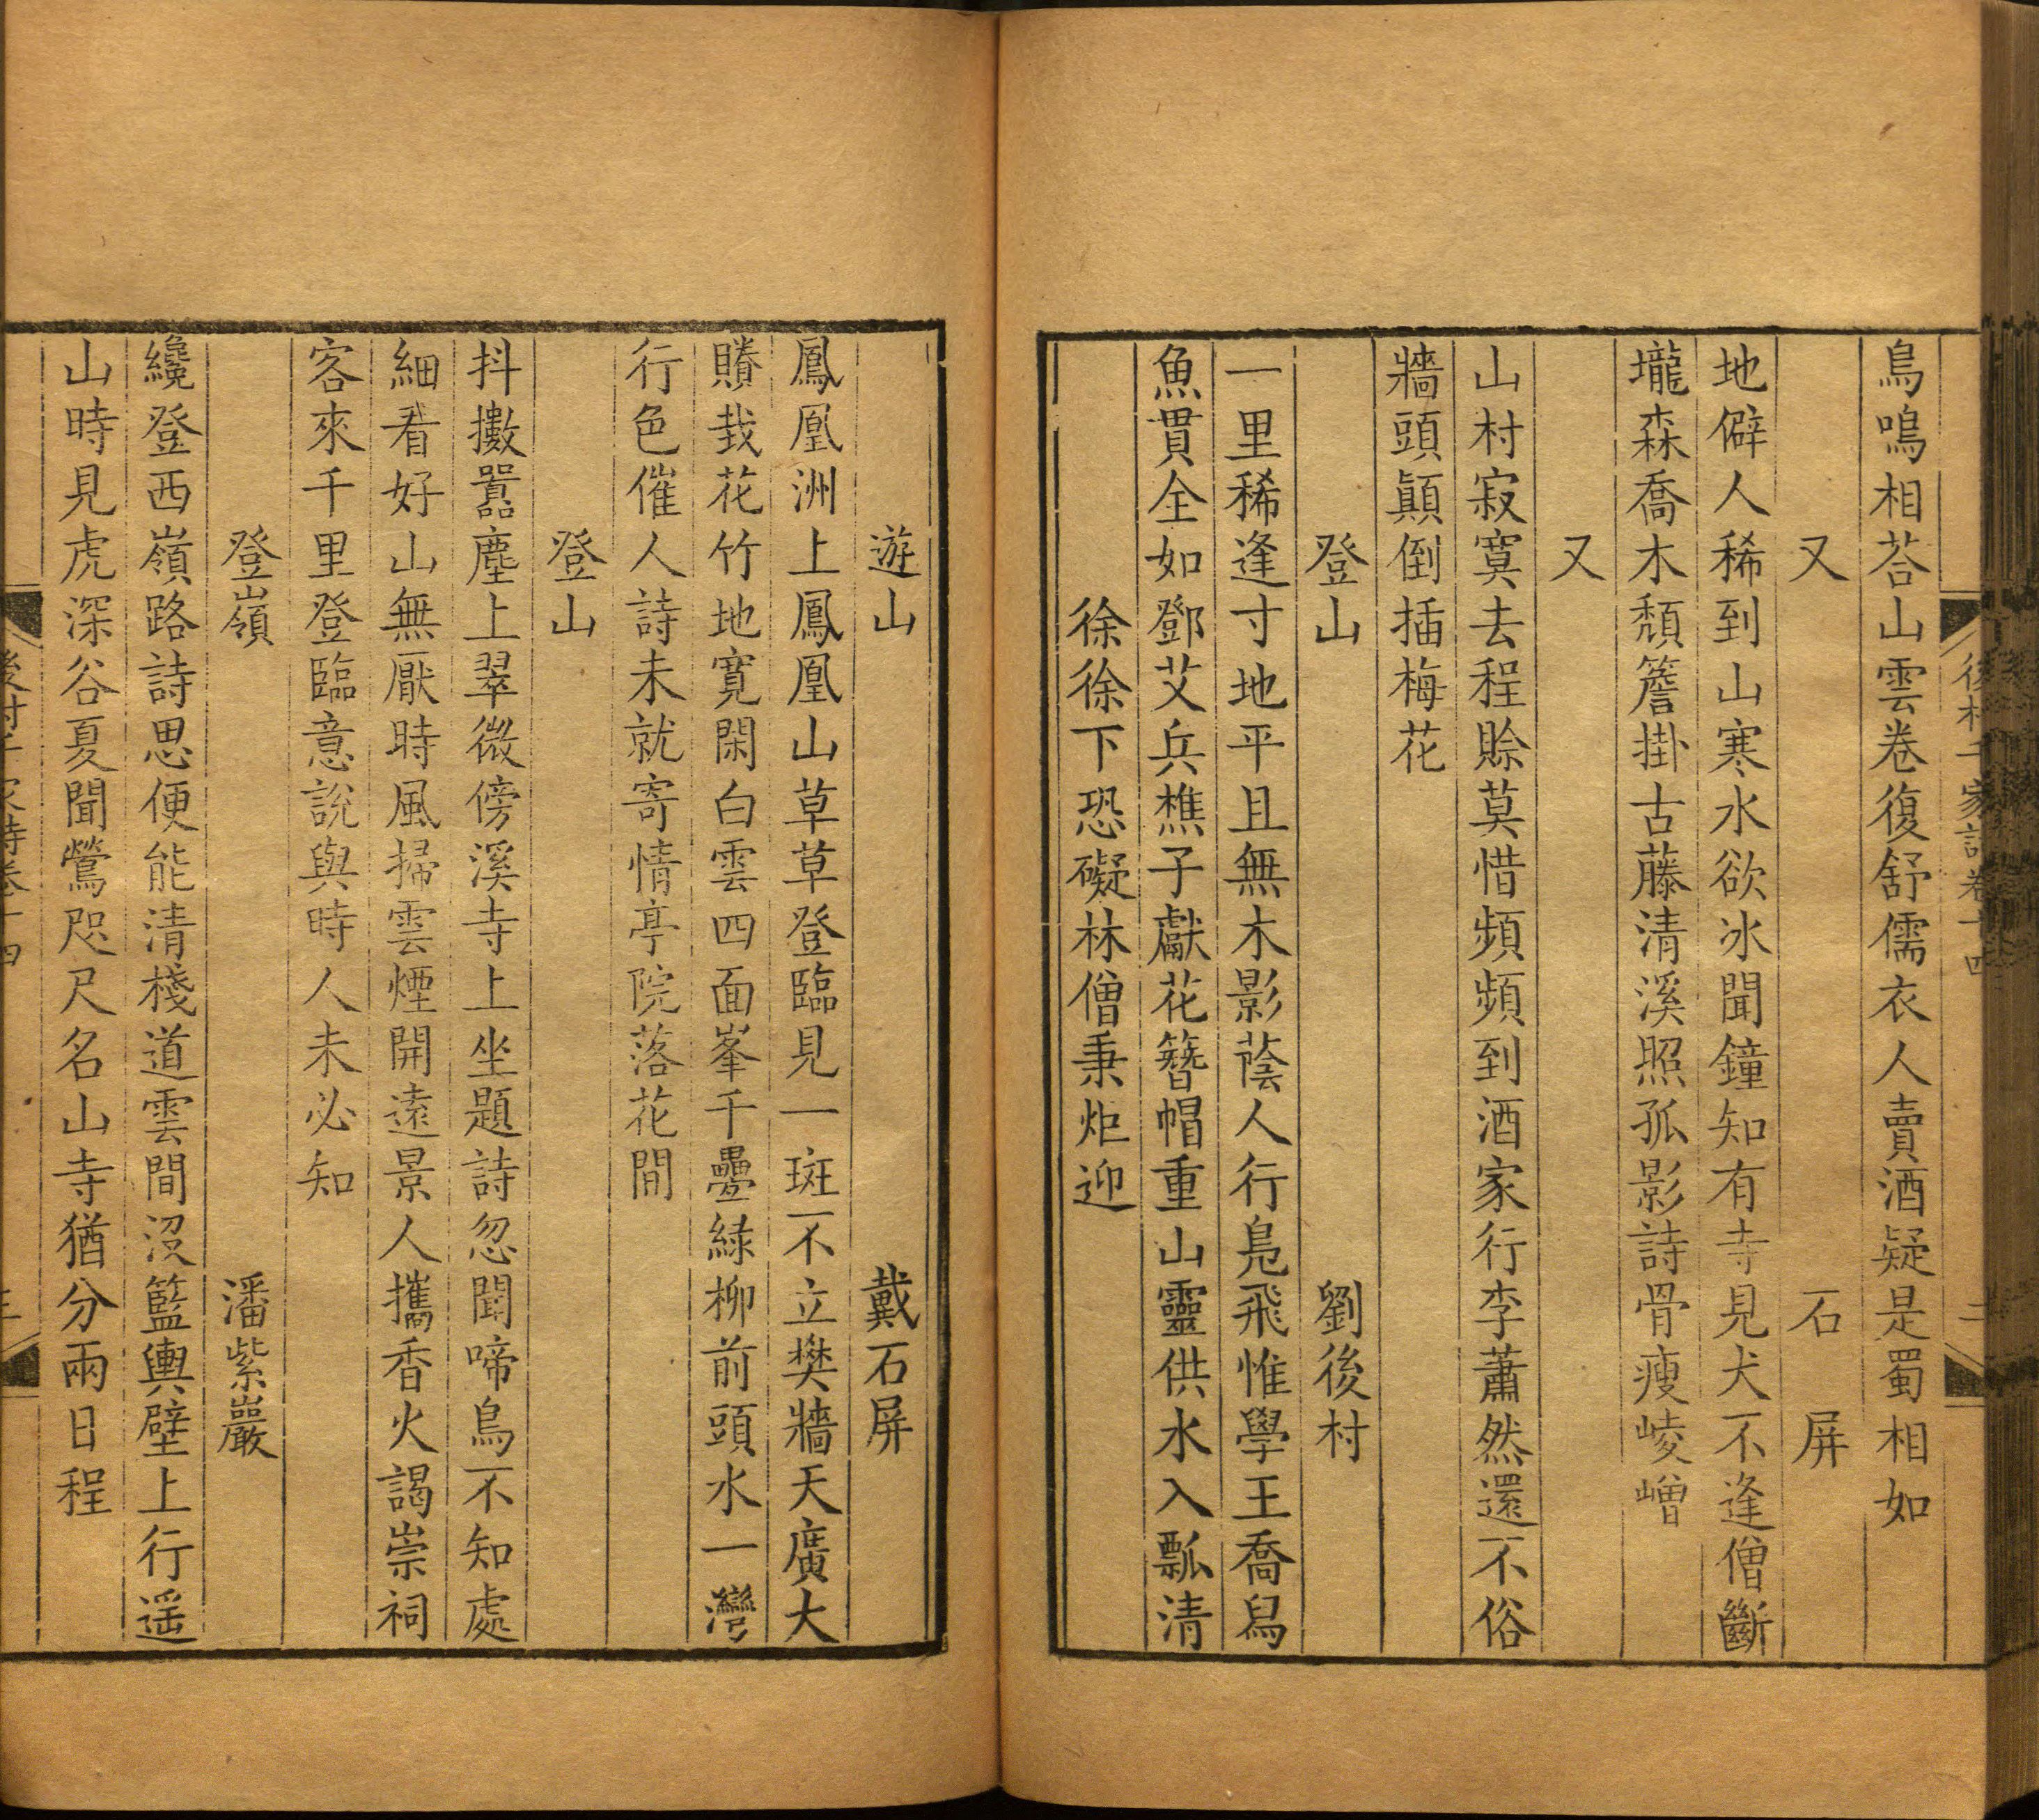 後村千家詩卷十四 二
鳥鳴相荅山雲卷復舒儒衣人賣酒疑是蜀相如
又 石屏
地僻人稀到山寒水欲冰聞鐘知有寺見犬不逢僧斷
壠森喬木頹簷掛古藤清溪照孤影詩骨瘦崚嶒
又
山村寂寞去程賒莫惜頻頻到酒家行李蕭然還不俗
牆頭顛倒插梅花
登山 劉後村
一里稀逢寸地平且無木影蔭人行鳧飛惟學王喬舄
魚貫全如鄧艾兵樵子獻花簪帽重山靈供水入瓢清
徐徐下恐礙林僧秉炬迎
遊山 戴石屏
鳳凰洲上鳳凰山草草登臨見一斑不立樊牆天廣大
賸栽花竹地寬閑白雲四面峯千疊綠柳前頭水一灣
行色催人詩未就寄情亭院落花間
登山
抖擻囂塵上翠微傍溪寺上坐題詩忽聞啼鳥不知處
細看好山無厭時風掃雲煙開遠景人攜香火謁崇祠
客來千里登臨意說與時人未必知
登嶺 潘紫巖
纔登西嶺路詩思便能清棧道雲間沒籃輿壁上行遥
山時見虎深谷夏聞鶯咫尺名山寺猶分兩日程
後村千家詩卷十四 三